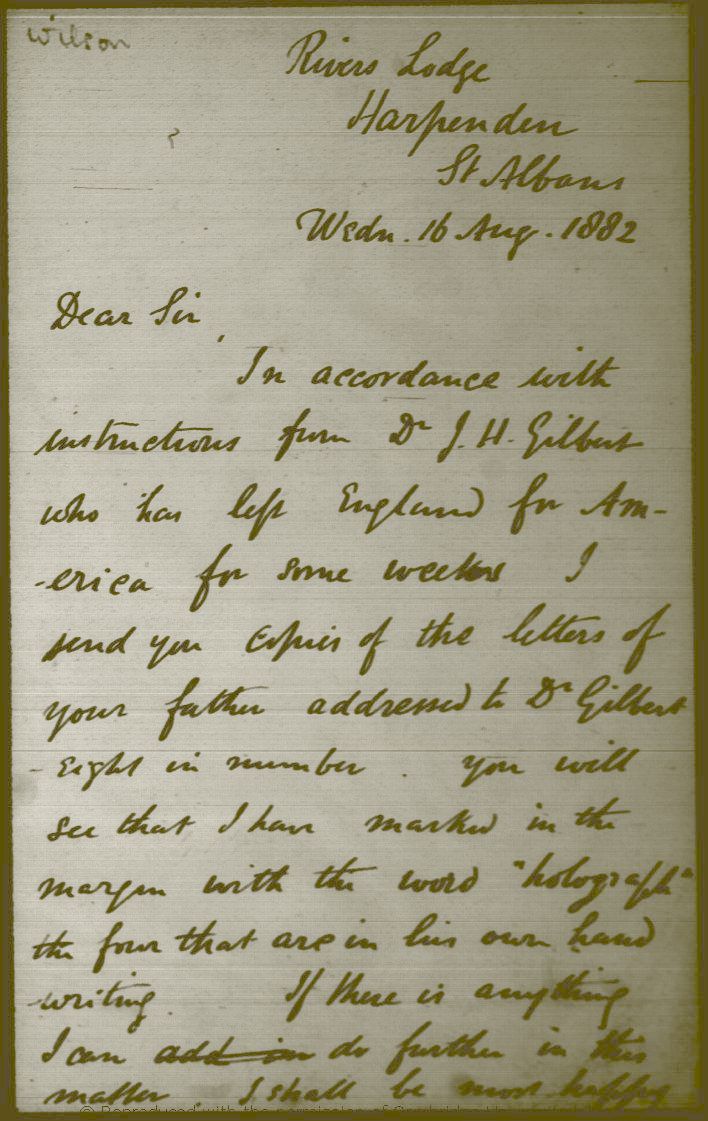 Wilson
Rivers Lodge
Harpenden
St Albans
Wedn. 16 Aug. 1882
Dear Sir,
In accordance with
instructions from Dr J. H. Gilbert
who has left England for Am-
-erica for some weeks I
send you copies of the letters of
your father addressed to Dr Gilbert
- eight in number. You will
see that I have marked in the
margin with the word "holograph"
the four that are in his own hand
writing. If there is anything
I can add in do further in this
matter, I shall be most happy
© Reproduced with the permission of Cambridge University